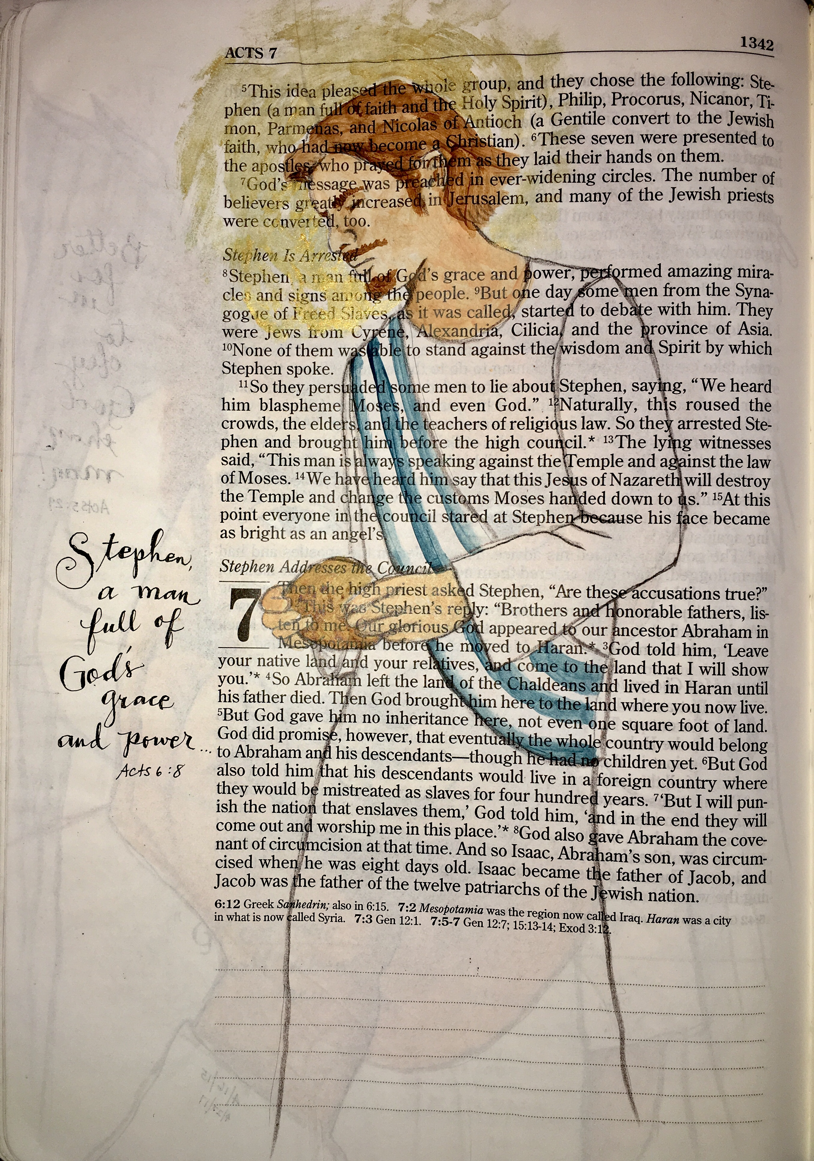 ACTS 7
1342
⁵This idea pleased the whole group, and they chose the following: Ste-
phen (a man full of faith and the Holy Spirit), Philip, Procorus, Nicanor, Ti-
mon, Parmenas, and Nicolas of Antioch (a Gentile convert to the Jewish
faith, who had now become a Christian). ⁶These seven were presented to
the apostles, who prayed for them as they laid their hands on them.
⁷God's message was preached in ever-widening circles. The number of
believers greatly increased in Jerusalem, and many of the Jewish priests
were converted, too.
Stephen Is Arrested
⁸Stephen, a man full of God's grace and power, performed amazing mira-
cles and signs among the people. ⁹But one day some men from the Syna-
gogue of Freed Slaves, as it was called, started to debate with him. They
were Jews from Cyrene, Alexandria, Cilicia, and the province of Asia.
¹⁰None of them was able to stand against the wisdom and Spirit by which
Stephen spoke.
¹¹So they persuaded some men to lie about Stephen, saying, "We heard
him blaspheme Moses, and even God." ¹²Naturally, this roused the
crowds, the elders, and the teachers of religious law. So they arrested Ste-
phen and brought him before the high council.* ¹³The lying witnesses
said, "This man is always speaking against the Temple and against the law
of Moses. ¹⁴We have heard him say that this Jesus of Nazareth will destroy
the Temple and change the customs Moses handed down to us." ¹⁵At this
point everyone in the council stared at Stephen because his face became
as bright as an angel's.
Stephen Addresses the Council
7 Then the high priest asked Stephen, "Are these accusations true?"
²This was Stephen's reply: "Brothers and honorable fathers, lis-
ten to me. Our glorious God appeared to our ancestor Abraham in
Mesopotamia before he moved to Haran.* ³God told him, 'Leave
your native land and your relatives, and come to the land that I will show
you.'* ⁴So Abraham left the land of the Chaldeans and lived in Haran until
his father died. Then God brought him here to the land where you now live.
⁵But God gave him no inheritance here, not even one square foot of land.
God did promise, however, that eventually the whole country would belong
to Abraham and his descendants—though he had no children yet. ⁶But God
also told him that his descendants would live in a foreign country where
they would be mistreated as slaves for four hundred years. ⁷'But I will pun-
ish the nation that enslaves them,' God told him, 'and in the end they will
come out and worship me in this place.'* ⁸God also gave Abraham the cove-
nant of circumcision at that time. And so Isaac, Abraham's son, was circum-
cised when he was eight days old. Isaac became the father of Jacob, and
Jacob was the father of the twelve patriarchs of the Jewish nation.
6:12 Greek Sanhedrin; also in 6:15. 7:2 Mesopotamia was the region now called Iraq. Haran was a city
in what is now called Syria. 7:3 Gen 12:1. 7:5-7 Gen 12:7; 15:13-14; Exod 3:12.
Stephen,
a man
full of
God's
grace
and power...
Acts 6:8